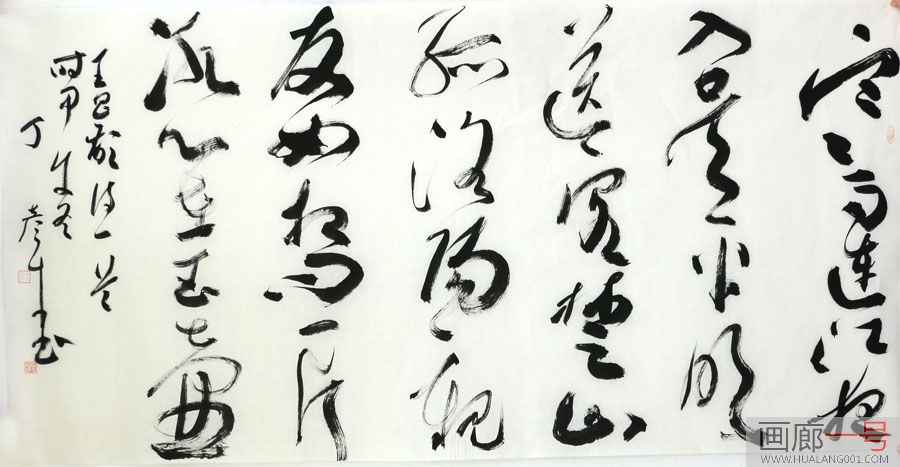 寒雨連江夜
入吴平明
送客楚山
孤洛陽親
友如相问一片
冰心在玉壶
王昌龄诗一首
时甲午冬
丁彦书
画廊一号
WWW.HUALANG001.COM